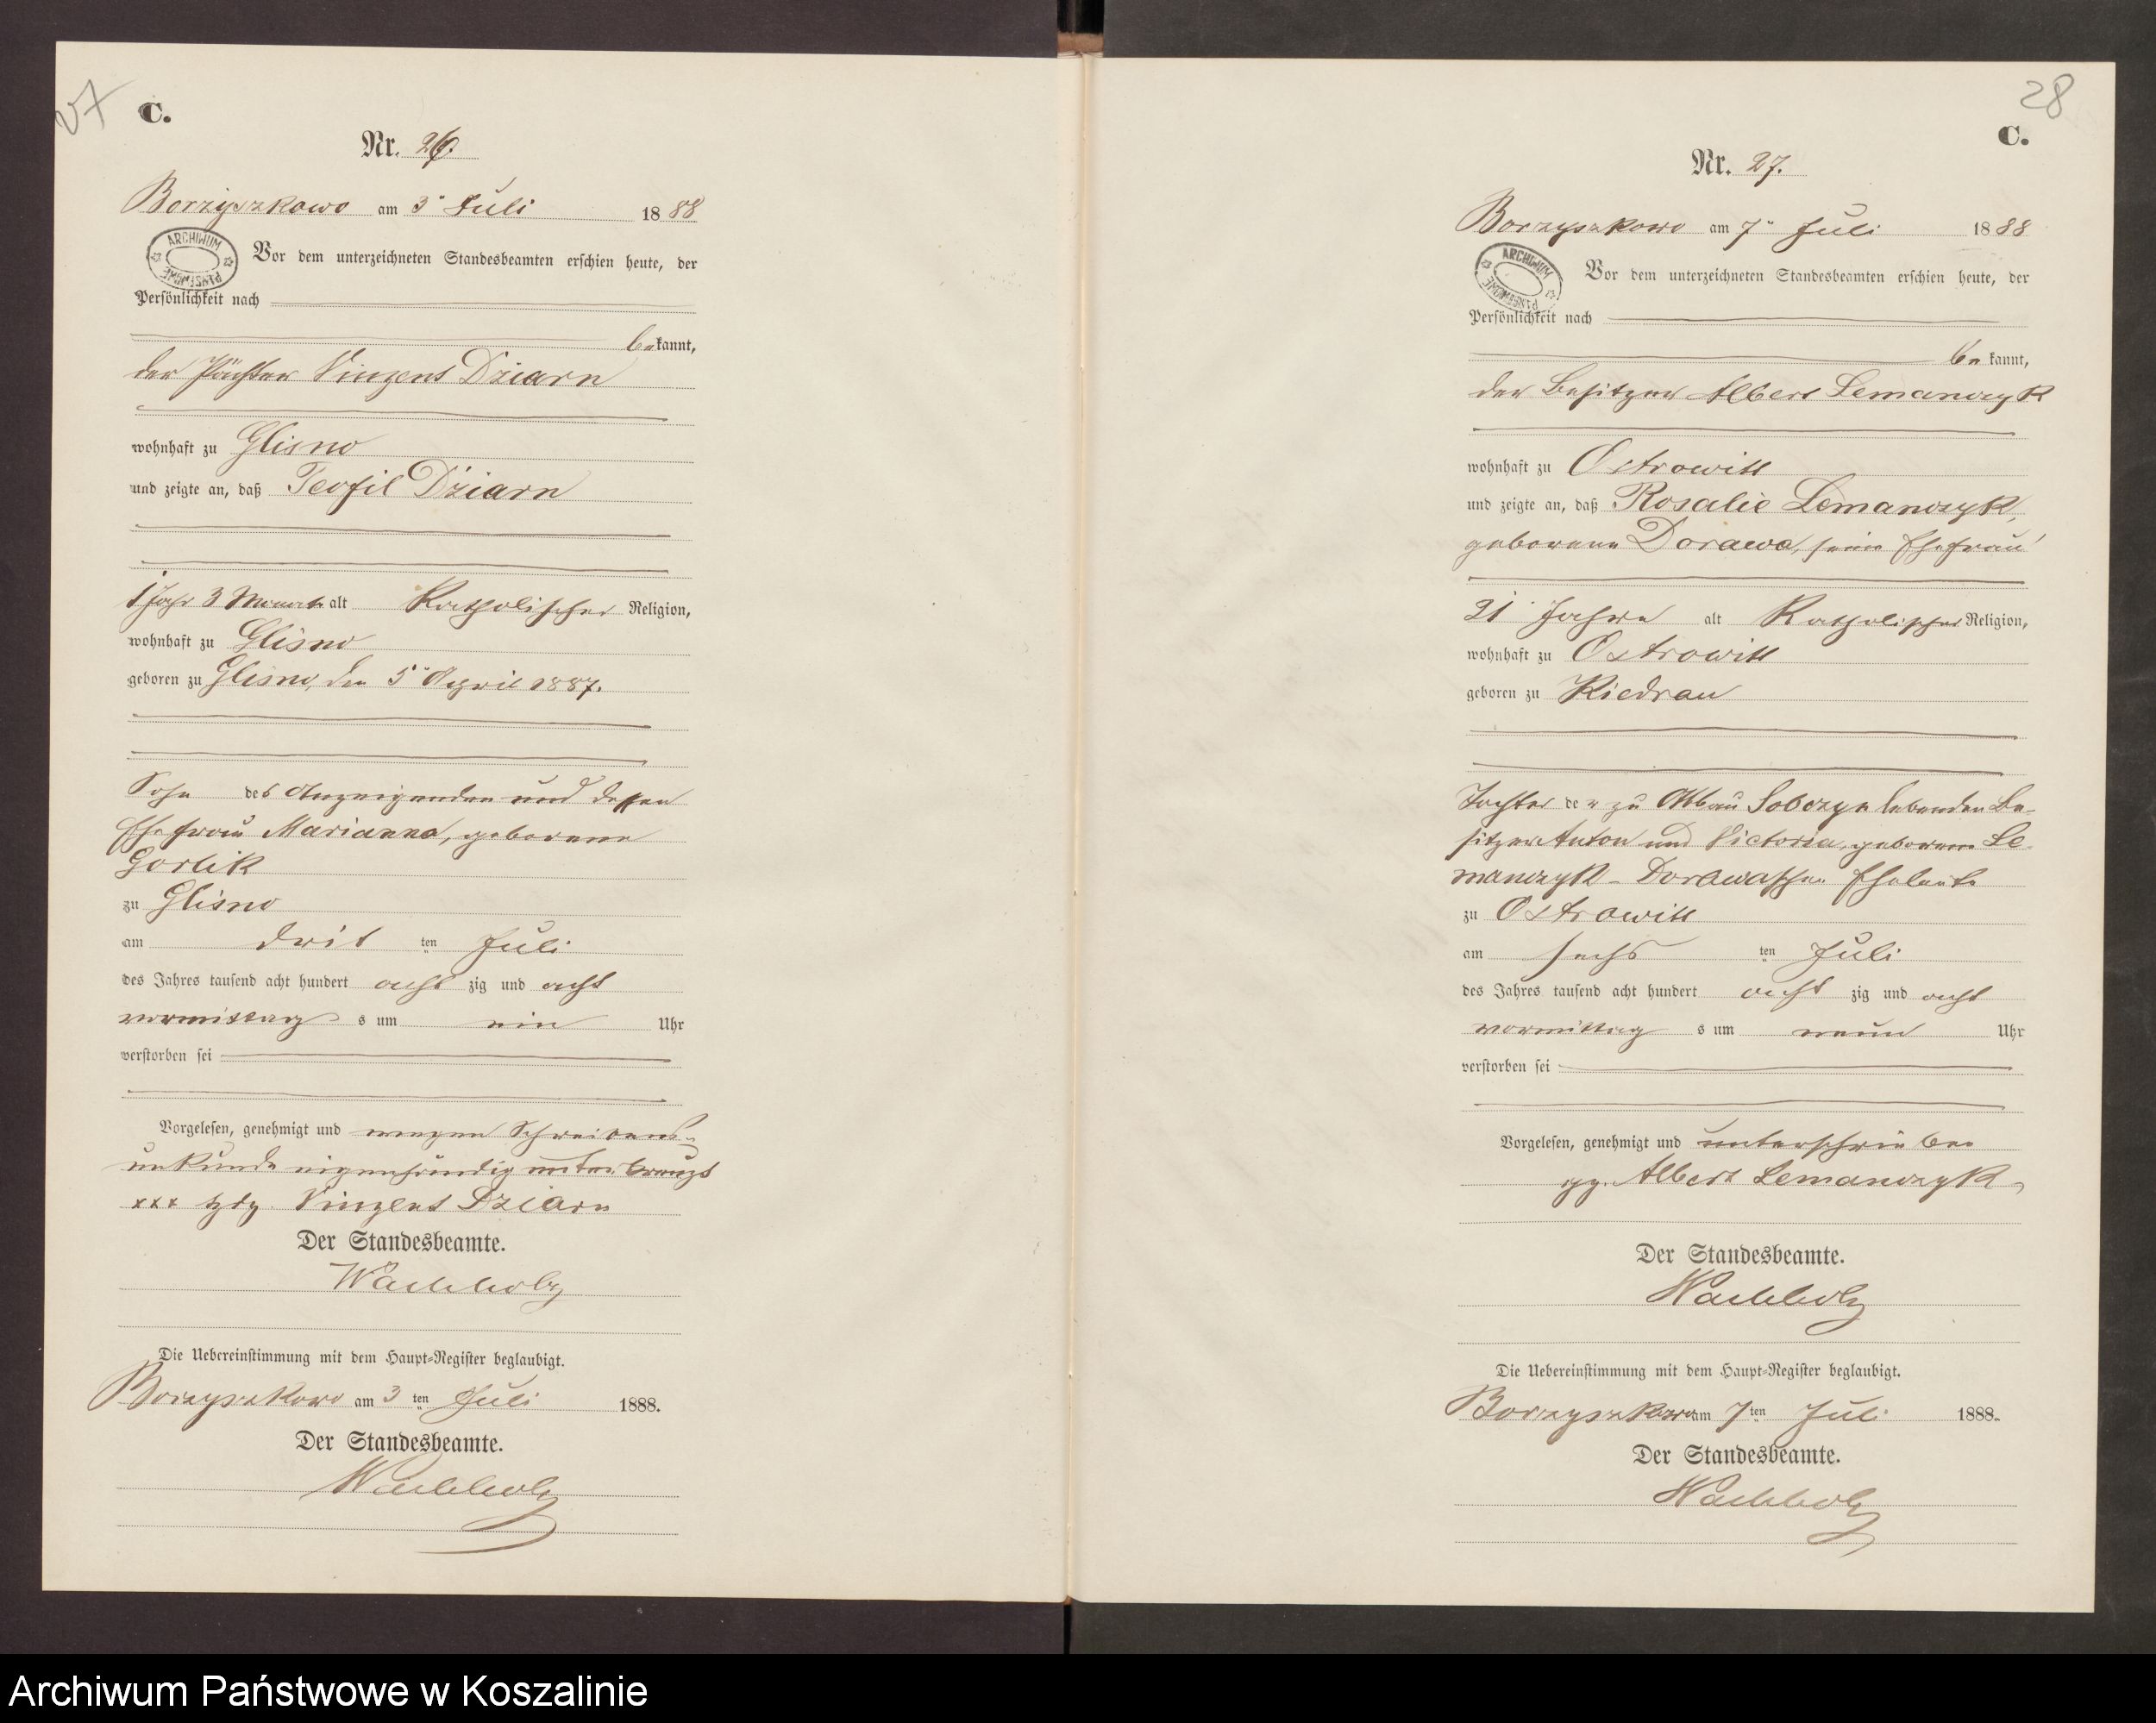 27
C.
Nr. 26.
Borzyszkowo am 3ᵗ Juli 1888
ARCHIWUM PAŃSTWOWE
Vor dem unterzeichneten Standesbeamten erschien heute, der
Persönlichkeit nach
bekannt,
der Pächter Vinzent Dziarn
wohnhaft zu Glisno
und zeigte an, daß Teofil Dziarn
1 Jahr 3 Monate alt Katholischer Religion,
wohnhaft zu Glisno
geboren zu Glisno, den 5ᵗ April 1887.
Sohn des Anzeigenden und dessen
Ehefrau Marianna, geborene
Gorlik
zu Glisno
am drit ten Juli
des Jahres tausend acht hundert acht zig und acht
vormittag s um ein Uhr
verstorben sei
Vorgelesen, genehmigt und wegen Schreibens-
unkunde eigenhändig unterkreuzt
xxx Hdz. Vinzent Dziarn
Der Standesbeamte.
Wachholz
Die Uebereinstimmung mit dem Haupt-Register beglaubigt.
Borzyszkowo am 3 ten Juli 1888.
Der Standesbeamte.
Wachholz
28
C.
Nr. 27.
Borzyszkowo am 7ᵗ Juli 1888
ARCHIWUM PAŃSTWOWE
Vor dem unterzeichneten Standesbeamten erschien heute, der
Persönlichkeit nach
be kannt,
der Besitzer Albert Lemanczyk
wohnhaft zu Ostrowitt
und zeigte an, daß Rosalie Lemanczyk,
geborene Dorawa, seine Ehefrau
21 Jahre alt Katholischer Religion,
wohnhaft zu Ostrowitt
geboren zu Kiedrau
Tochter der zu Abbau Sobczyn lebenden Be-
sitzer Anton und Victoria, geborene Le-
manczyk - Dorawaschen Eheleute
zu Ostrowitt
am sechs ten Juli
des Jahres tausend acht hundert acht zig und acht
vormittag s um neun Uhr
verstorben sei
Vorgelesen, genehmigt und unterschrieben
gz. Albert Lemanczyk
Der Standesbeamte.
Wachholz
Die Uebereinstimmung mit dem Haupt-Register beglaubigt.
Borzyszkowo am 7 ten Juli 1888.
Der Standesbeamte.
Wachholz
Archiwum Państwowe w Koszalinie